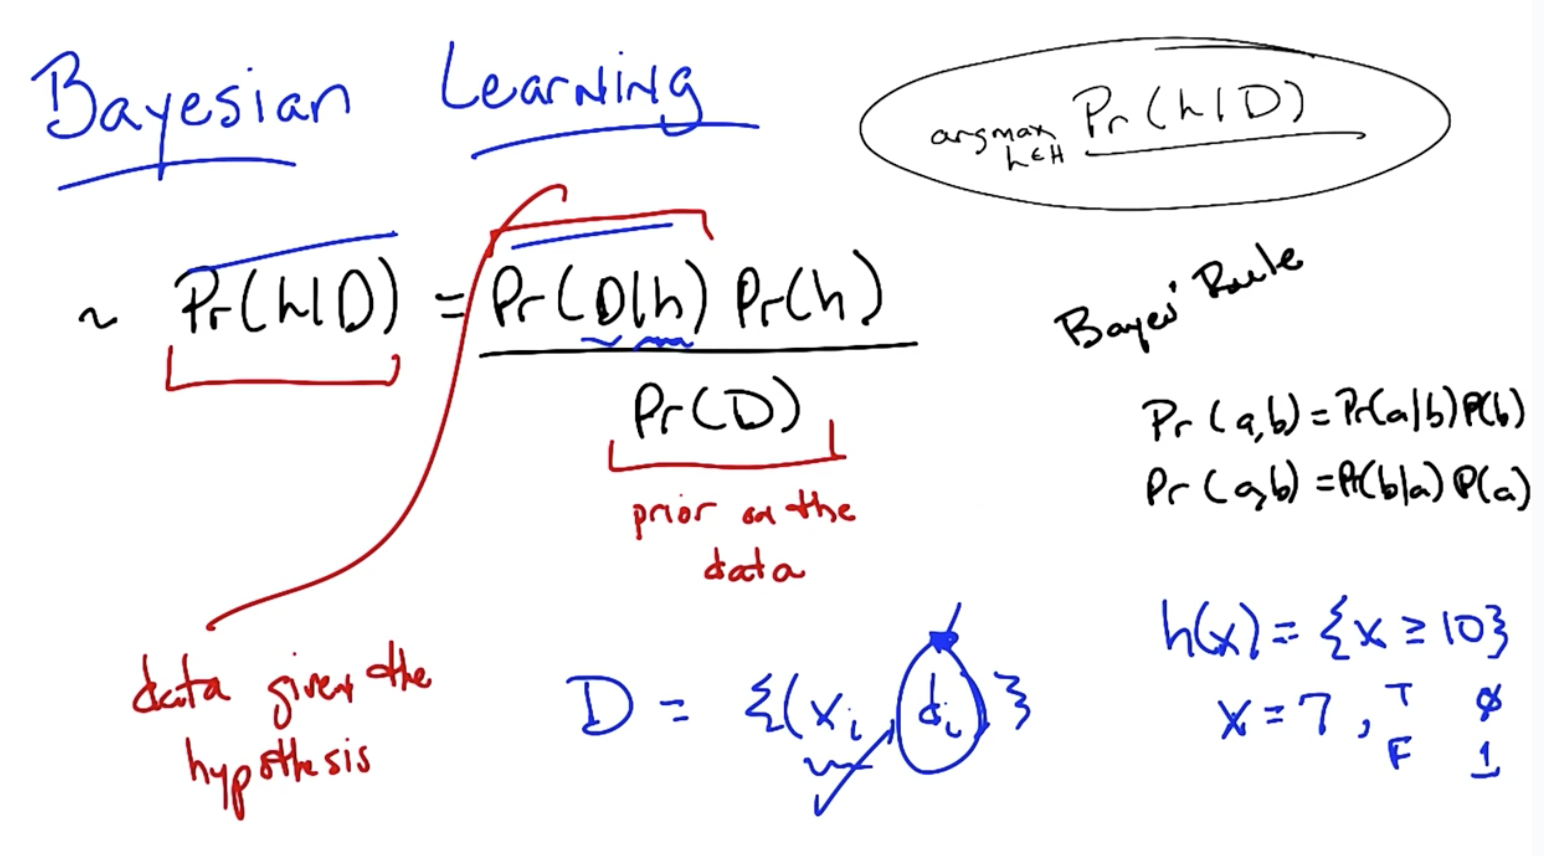 Bayesian Learning
argmax Pr(h|D)
h∈H
~ Pr(h|D) = Pr(D|h) Pr(h)
Pr(D)
Bayes' Rule
Pr(a,b) = Pr(a|b) P(b)
Pr(a,b) = Pr(b|a) P(a)
prior on the
data
data given the
hypothesis
D = {(xi, di)}
h(x) = {x ≥ 10}
x = 7, T 0
F 1